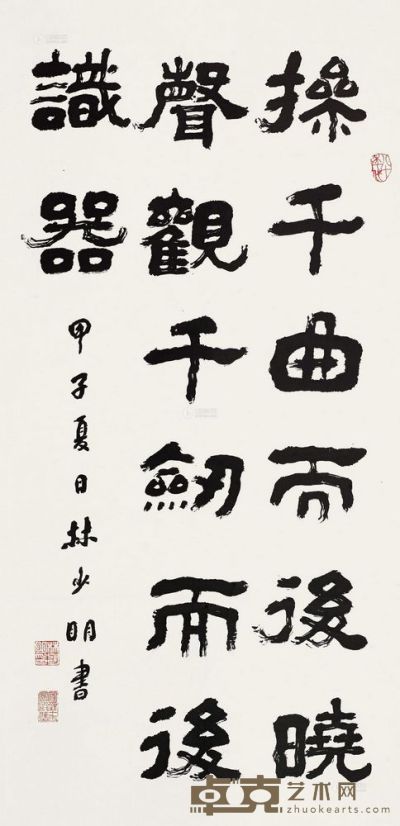 操千曲而後曉
聲觀千劔而後
識器
甲子夏日林少明書
卓克艺术网
zhuokearts.com